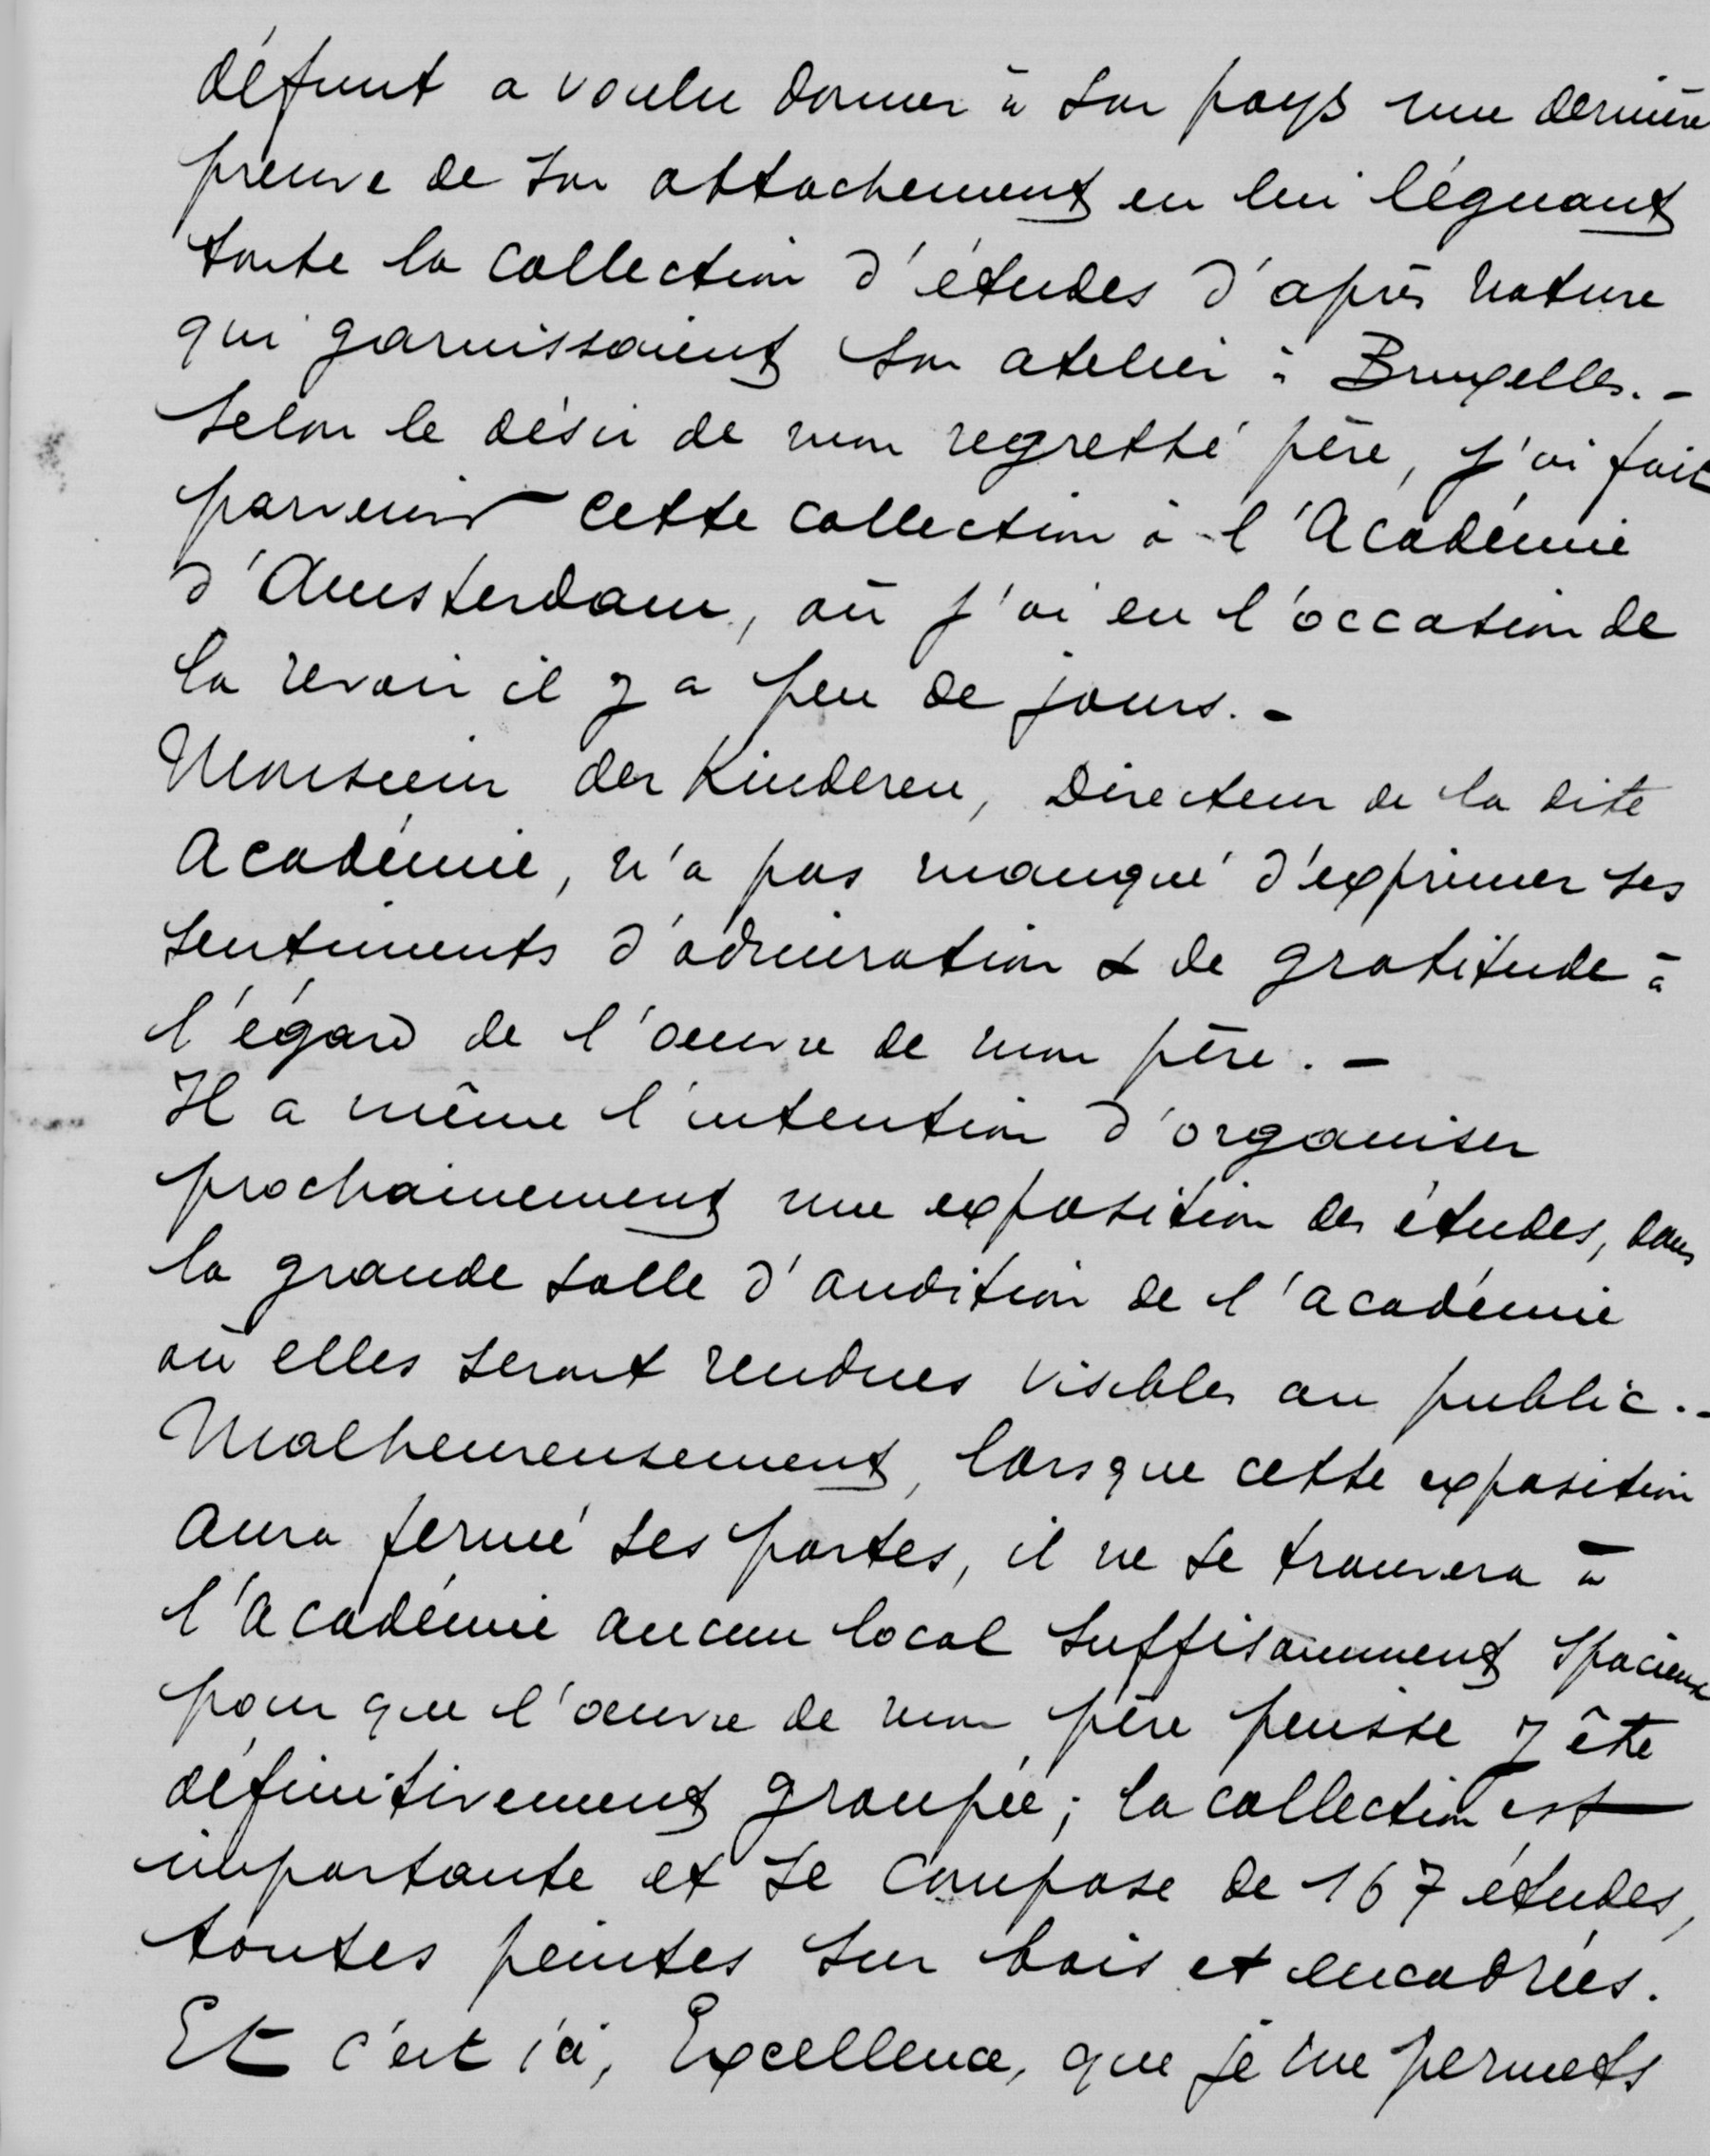 défunt a voulu donner à son pays une dernière
preuve de son attachement en lui léguant
toute la collection d'études d'après nature
qui garnissaient son atelier à Bruxelles. -
Selon le désir de mon regretté père, j'ai fait
parvenir cette collection à l'Académie
d'Amsterdam, où j'ai eu l'occasion de
la revoir il y a peu de jours. -
Monsieur der Kinderen, Directeur de la dite
Académie, n'a pas manqué d'exprimer ses
sentiments d'admiration & de gratitude à
l'égard de l'œuvre de mon père. -
Il a même l'intention d'organiser
prochainement une exposition des études, dans
la grande salle d'audition de l'académie
où elles seront rendues visibles au public. -
Malheureusement, lorsque cette exposition
aura fermé ses portes, il ne se trouvera à
l'Académie aucun local suffisamment spacieux
pour que l'œuvre de mon père puisse y être
définitivement groupée; la collection est
importante et se compose de 167 études,
toutes peintes sur bois et encadrées.
Et c'est ici, Excellence, que je me permets